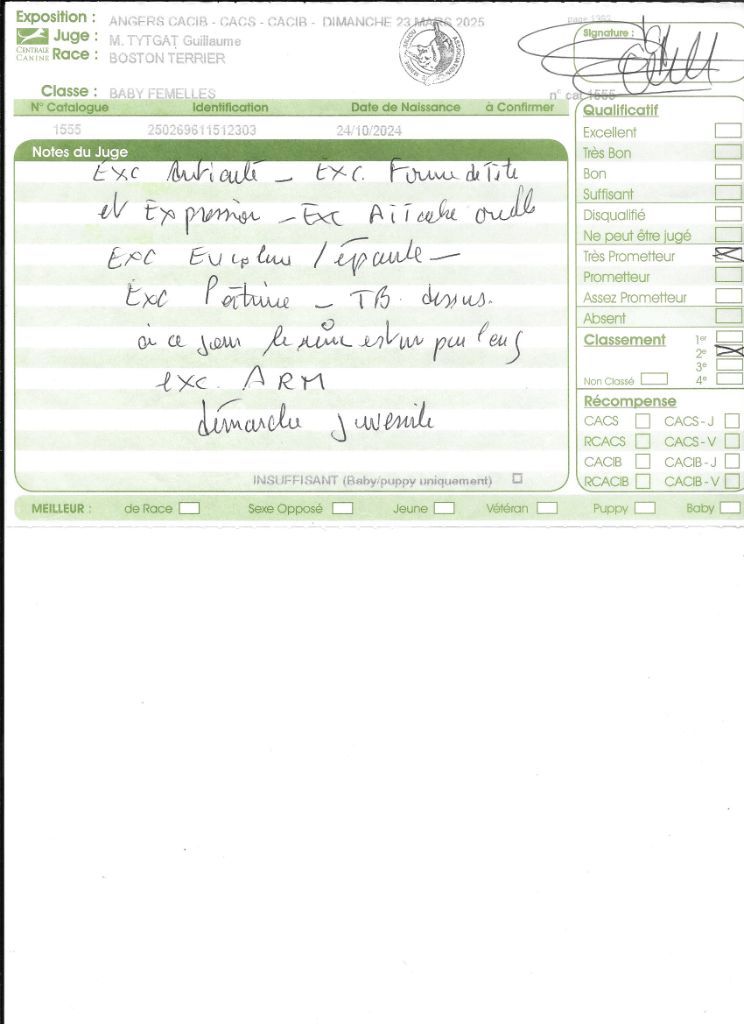 Exposition : ANGERS CACIB - CACS - CACIB - DIMANCHE 23 MARS 2025
page 1393
Signature :
CENTRALE CANINE
Juge : M. TYTGAT Guillaume
Race : BOSTON TERRIER
Classe : BABY FEMELLES
n° cat 1555
N° Catalogue Identification Date de Naissance à Confirmer
1555 250269611512303 24/10/2024
Notes du Juge
Exc - Exc. Forme de Tête
et Expression - Exc Attache oreille
Exc Encolure / épaule -
Exc Poitrine - TB dessus.
à ce jour le rein est un peu long
exc. ARM
démarche juvenile
INSUFFISANT (Baby/puppy uniquement)
Qualificatif
Excellent
Très Bon
Bon
Suffisant
Disqualifié
Ne peut être jugé
Très Prometteur
Prometteur
Assez Prometteur
Absent
Classement 1er
2e
3e
Non Classé 4e
Récompense
CACS CACS - J
RCACS CACS - V
CACIB CACIB - J
RCACIB CACIB - V
MEILLEUR : de Race Sexe Opposé Jeune Vétéran Puppy Baby